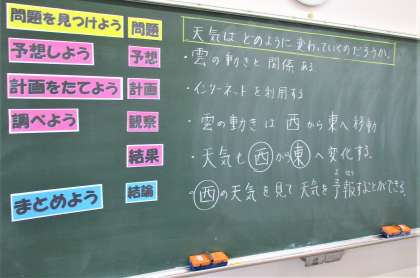 問題を見つけよう
予想しよう
計画をたてよう
調べよう
まとめよう
問題
予想
計画
観察
結果
結論
天気は どのように 変わっていくのだろうか。
・雲の動きと関係ある
・インターネットを利用する
・雲の動きは 西から東へ移動
・天気も西から東へ変化する。
・西の天気を見て天気を予報することができる。
よ ほう